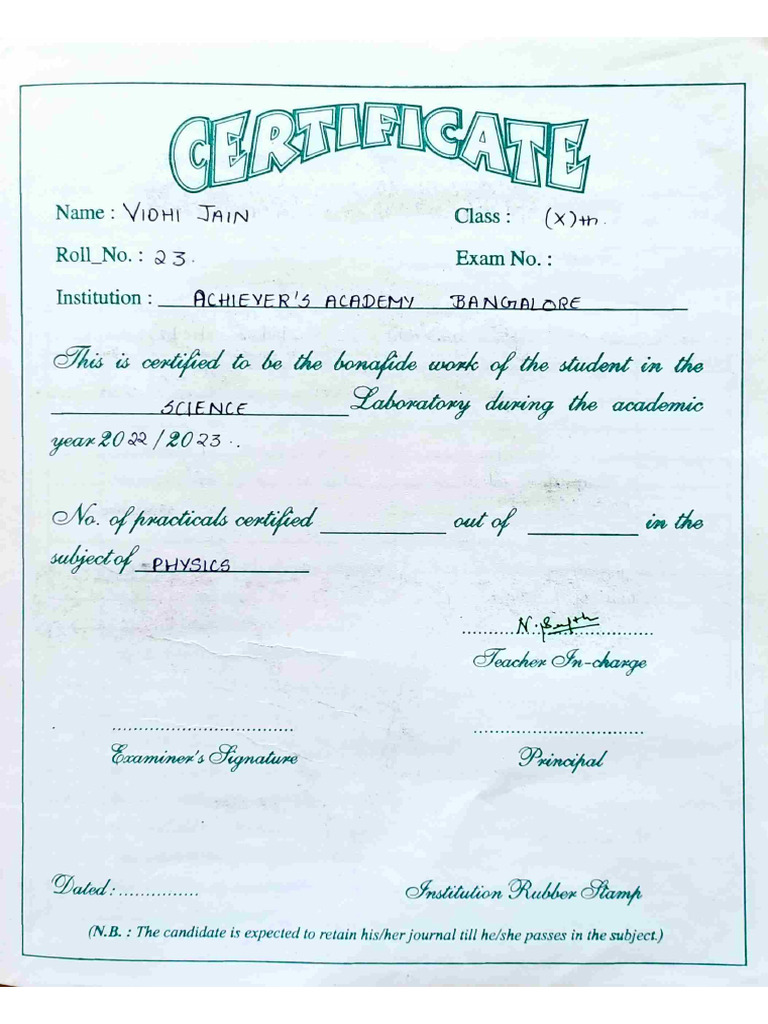 CERTIFICATE
Name : VIDHI JAIN Class : (X)th.
Roll_No. : 23. Exam No. :
Institution : ACHIEVER'S ACADEMY BANGALORE
This is certified to be the bonafide work of the student in the
SCIENCE Laboratory during the academic
year 2022 / 2023 .
No. of practicals certified ____________ out of ____________ in the
subject of PHYSICS
Teacher In-charge
Examiner's Signature Principal
Dated : ............... Institution Rubber Stamp
(N.B. : The candidate is expected to retain his/her journal till he/she passes in the subject.)